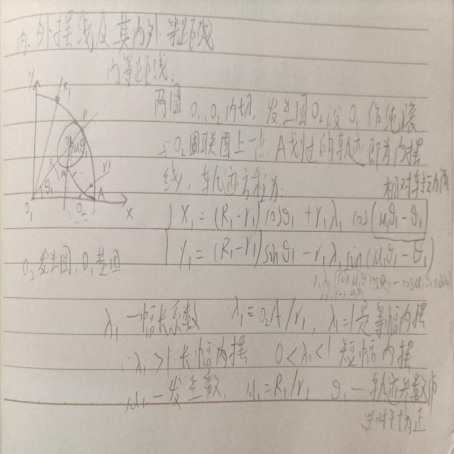 内、外摆线及其内外等距线
内等距线：
两圆O₁、O₂内切，发生圆O₂沿O₁作纯滚
O₂圆联图上一点A划过的轨迹即为内摆
线，轨迹方程为：
相对自转方向
x₁ = (R₁-r₁)cosθ₁ + r₁λ₁cos(μ₁θ₁-θ₁)
y₁ = (R₁-r₁)sinθ₁ - r₁λ₁sin(μ₁θ₁-θ₁)
O₂发生圆，O₁基圆
λ₁—幅长系数 λ₁=O₂A/r₁，λ₁=1是等幅内摆
λ₁>1长幅内摆 0<λ₁<1短幅内摆
μ₁—发生数，μ₁=R₁/r₁ θ₁—轨迹参数角
逆时针为正